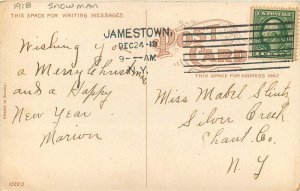 1918 SNOWMAN
THIS SPACE FOR WRITING MESSAGES
POST CARD
JAMESTOWN,
DEC 24-18
9-AM
N.Y.
THIS SPACE FOR ADDRESS ONLY
Wishing you
a Merry Christmas
and a Happy
New Year
Marion
Miss Mabel
Silver Creek
Chaut. Co.
N. Y